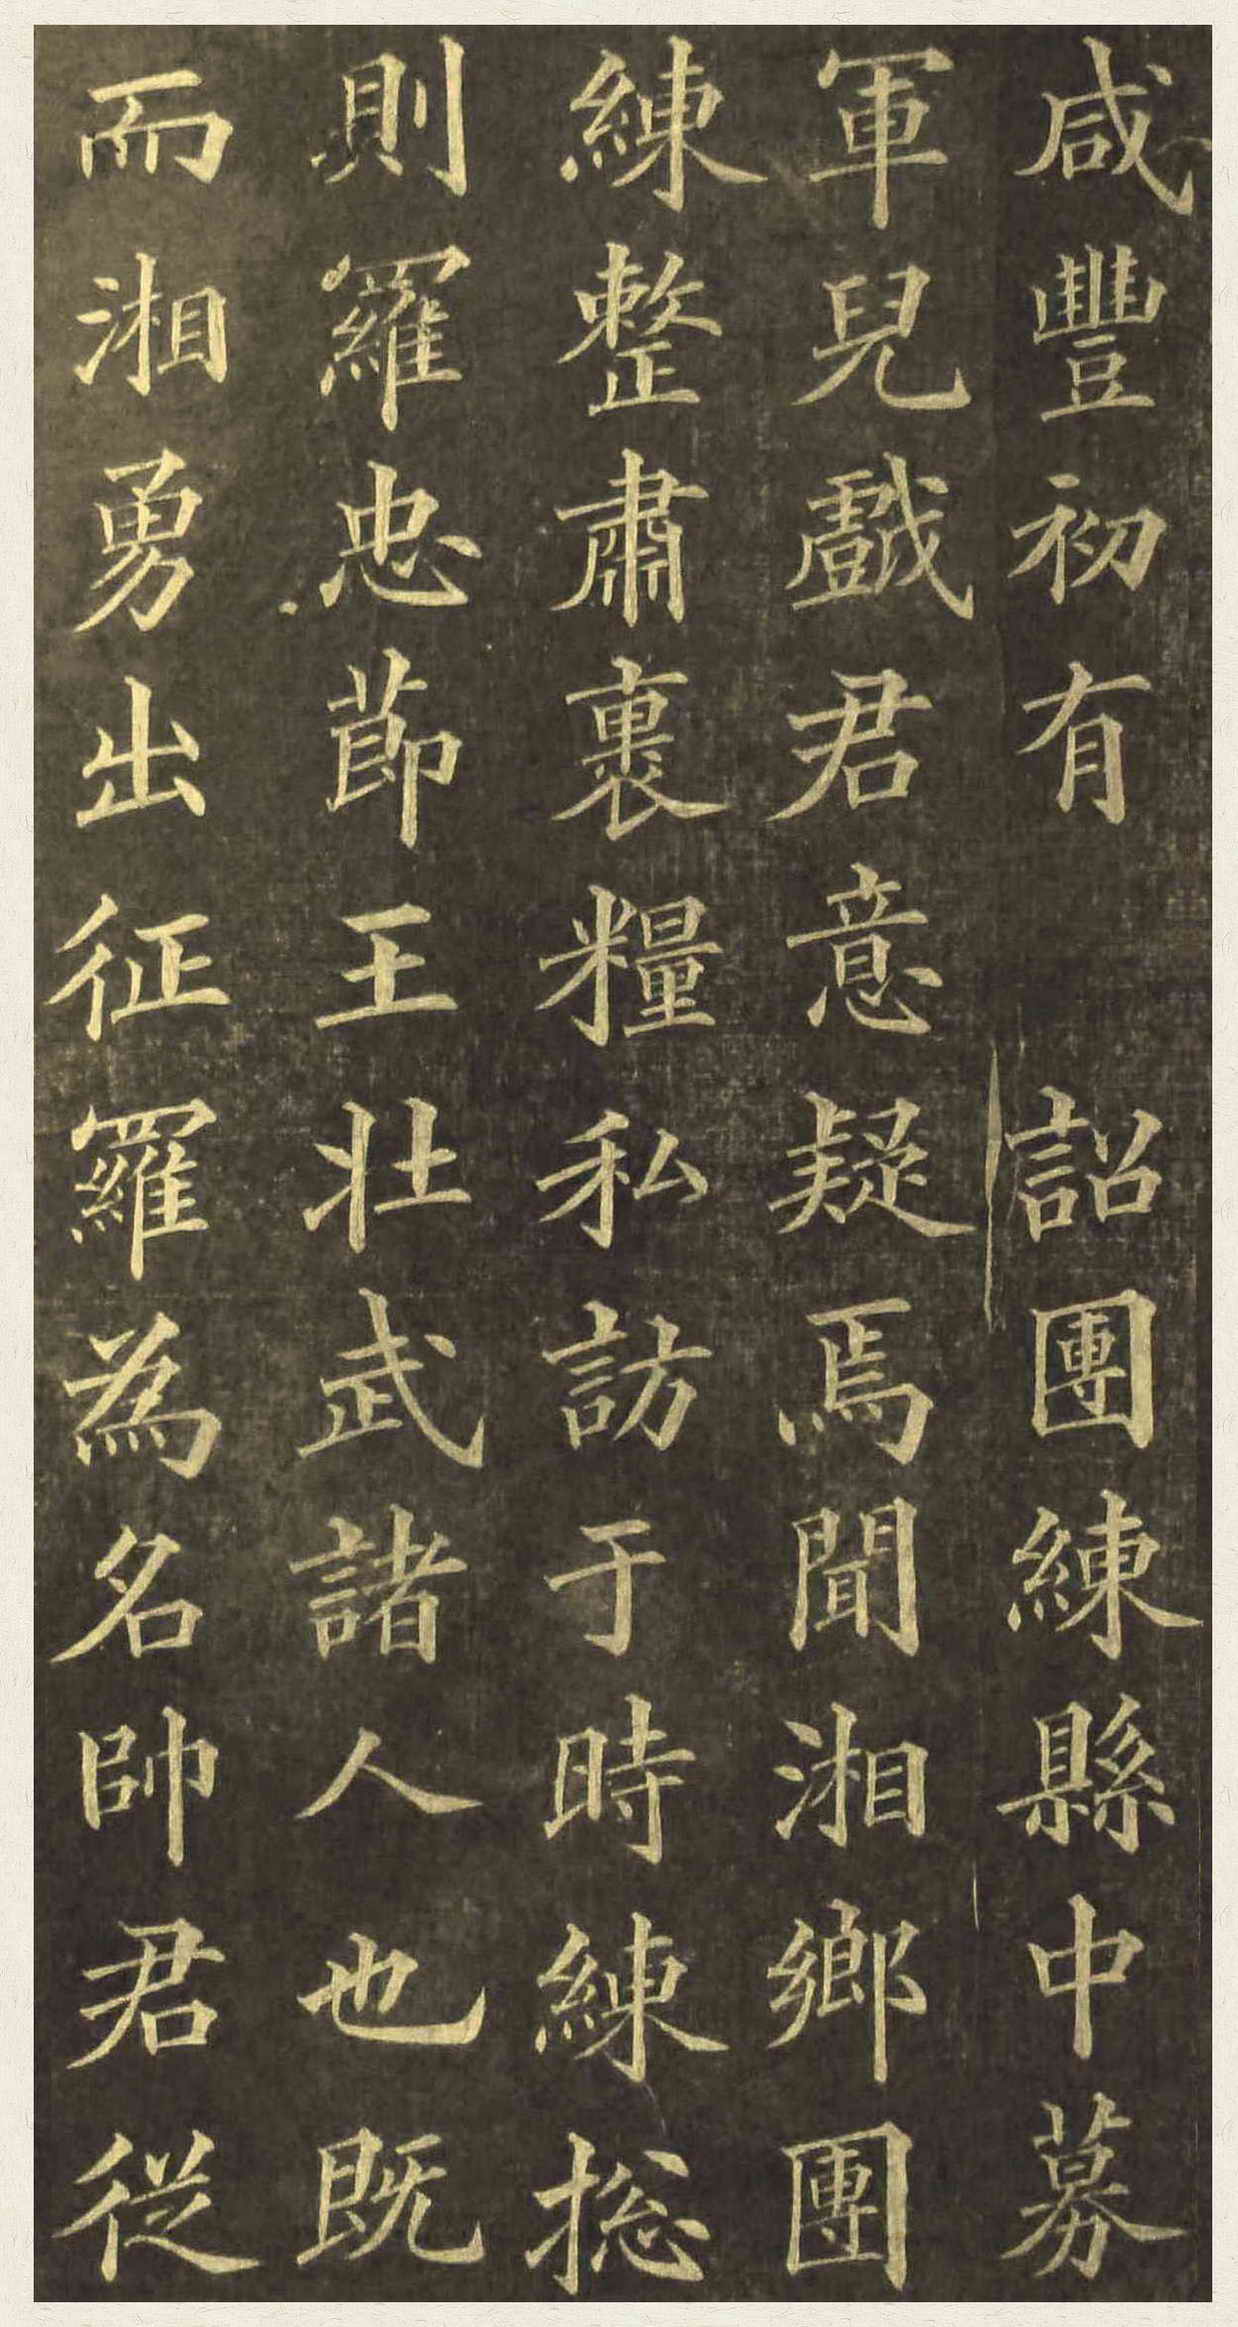 咸豐初有　詔團練縣中募
軍兒戲君意疑焉聞湘鄉團
練整肅裹糧私訪于時練揔
則羅忠節王壯武諸人也既
而湘勇出征羅為名帥君從